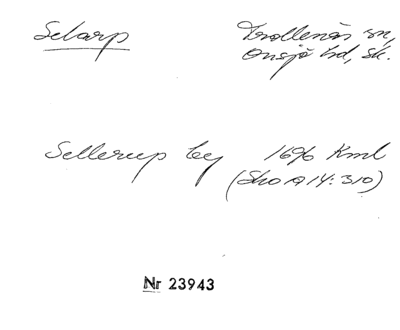 Selarp Trollenäs sn,
Onsjö hd, Sk.
Sellerup by 1696 Kml
(Sko A 14:310)
Nr 23943